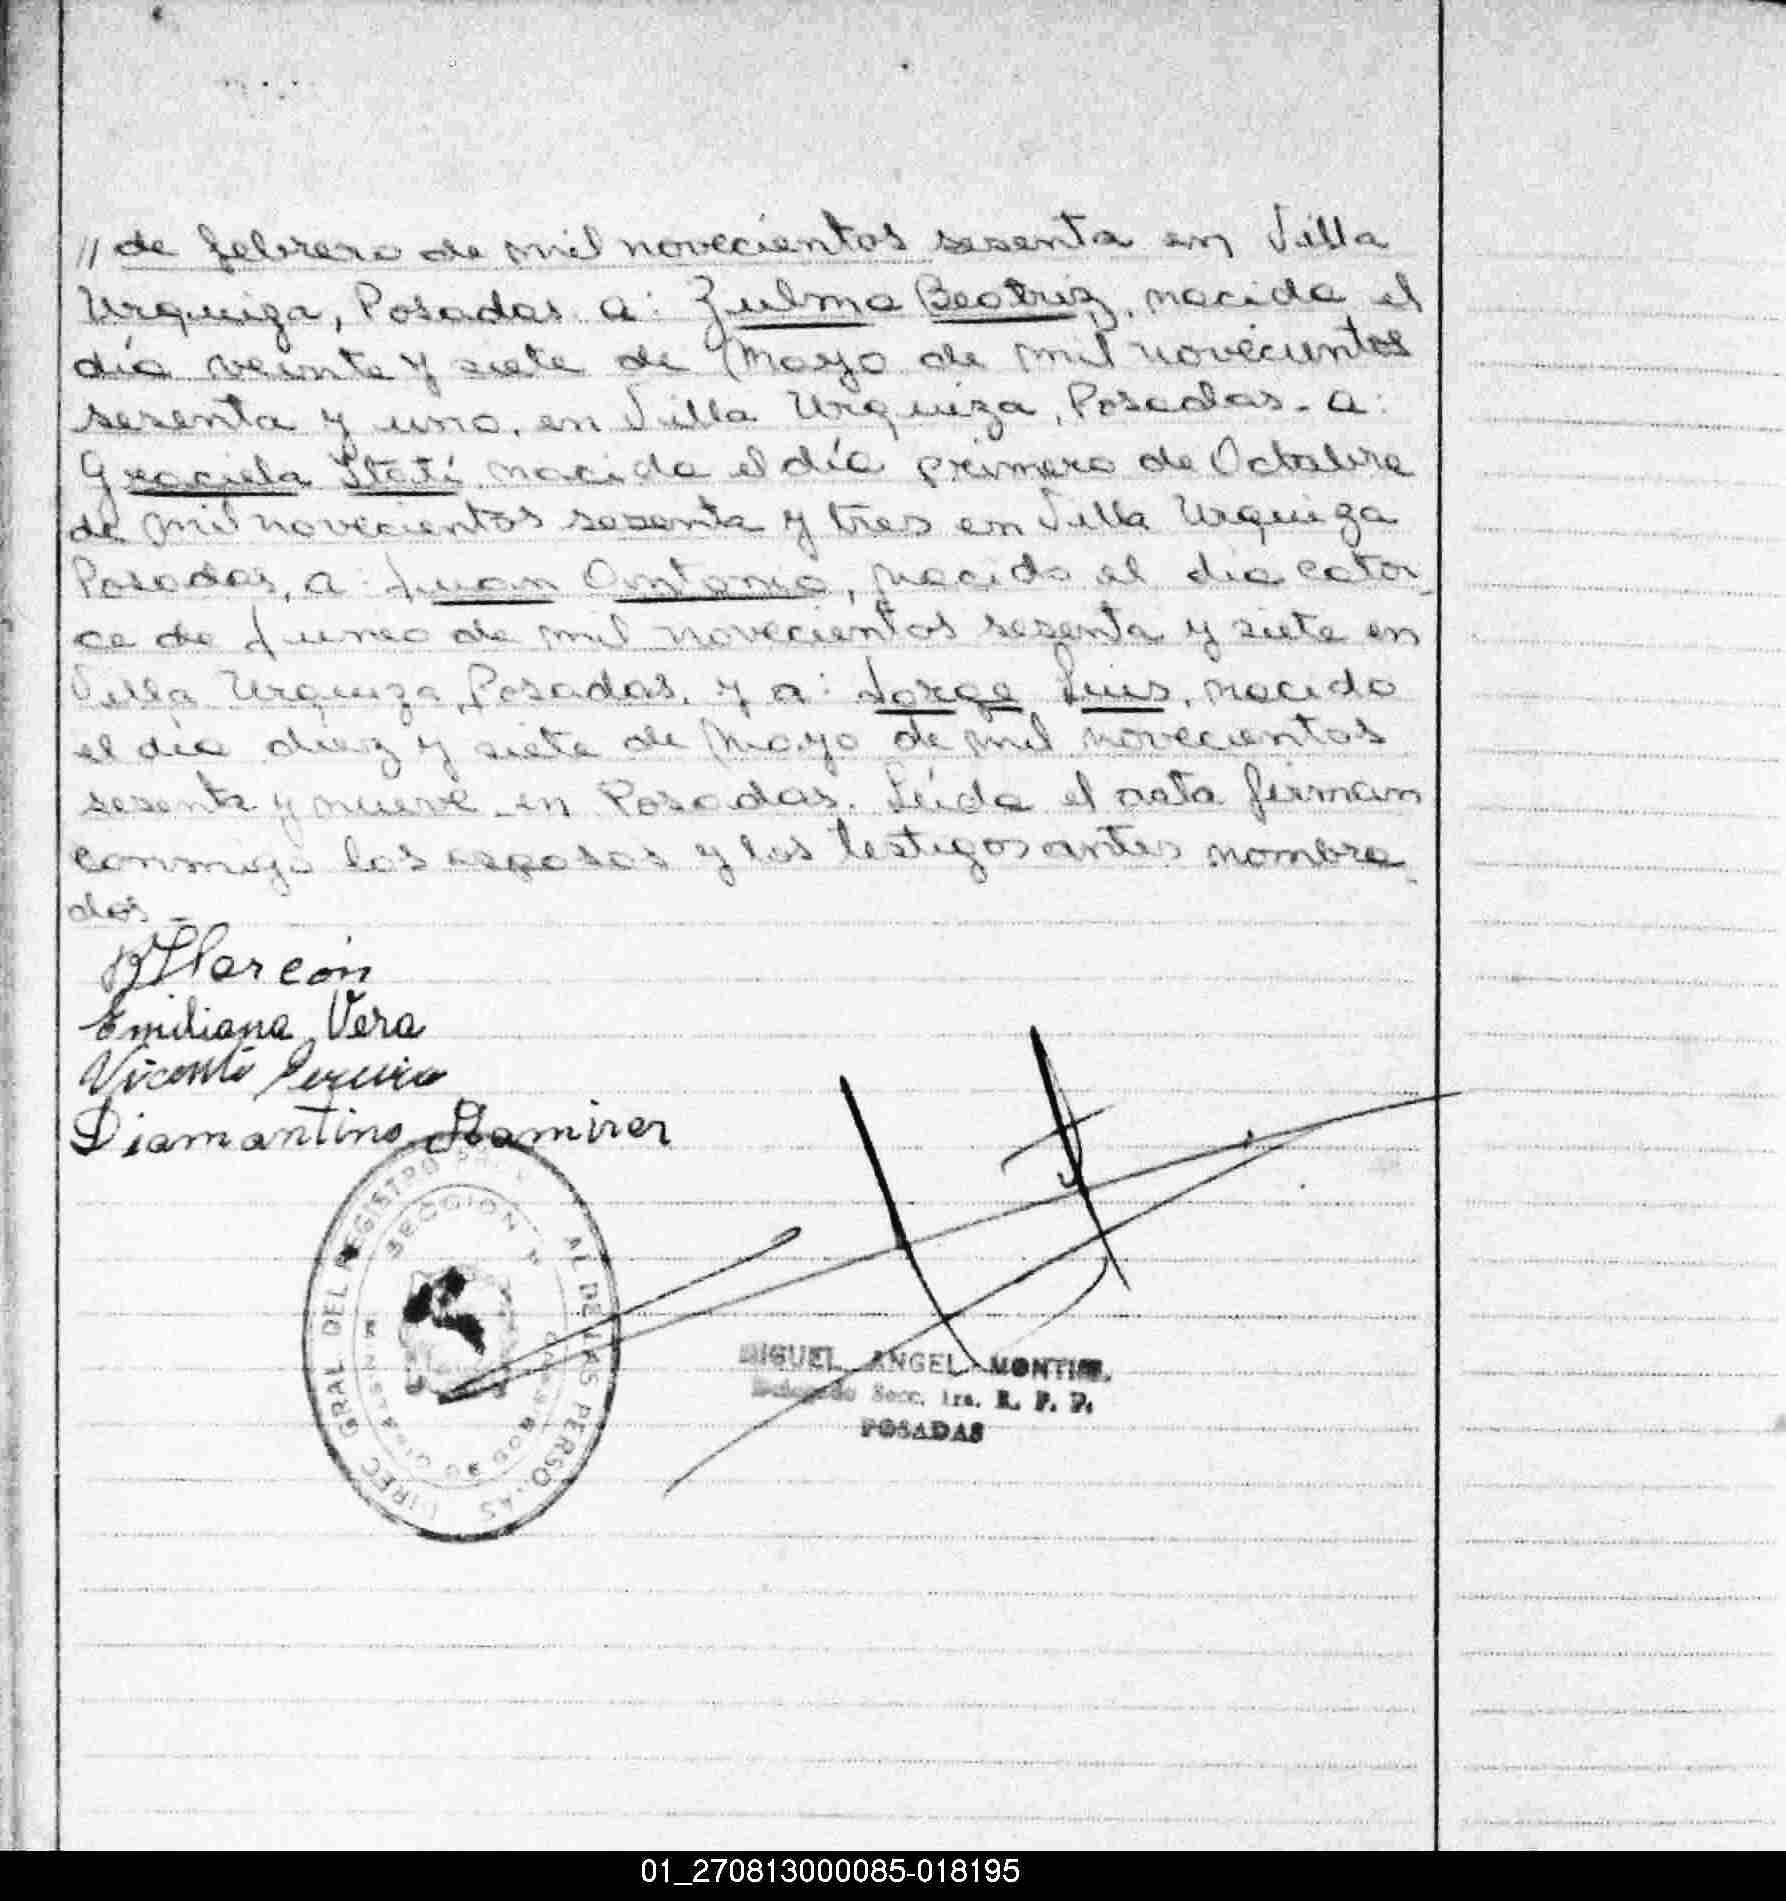 // de febrero de mil novecientos sesenta en Villa
Urquiza, Posadas. a: Zulma Beatriz, nacida el
día veinte y siete de Mayo de mil novecientos
sesenta y uno, en Villa Urquiza, Posadas. a:
Graciela Itatí nacida el día primero de Octubre
de mil novecientos sesenta y tres en Villa Urquiza
Posadas, a: Juan Antonio, nacido el día cator
ce de Junio de mil novecientos sesenta y siete en
Villa Urquiza, Posadas, y a: Jorge Luis, nacido
el día diez y siete de Mayo de mil novecientos
sesenta y nueve en Posadas. Leída el acta firman
conmigo los esposos y los testigos antes nombra
dos
Emiliana Vera
Vicente Pereira
Diamantino Ramirez
DIREC GRAL DEL REGISTRO DE LAS PERSONAS
SECCION
MISIONES
MIGUEL ANGEL
Delegado Secc. 1ra. R. P. P.
POSADAS
01_270813000085-018195